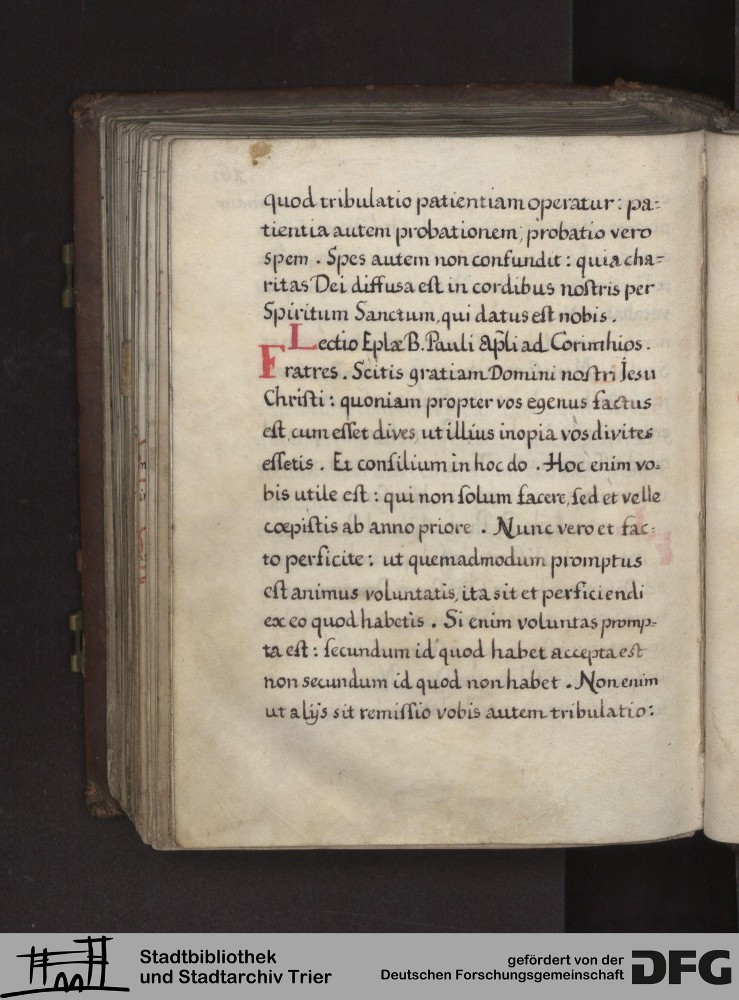 quod tribulatio patientiam operatur: pa=
tientia autem probationem; probatio vero
spem. Spes autem non confundit: quia cha=
ritas Dei diffusa est in cordibus nostris per
Spiritum Sanctum, qui datus est nobis.
Lectio Eplæ B. Pauli Apli ad Corinthios.
Fratres. Scitis gratiam Domini nostri Jesu
Christi: quoniam propter vos egenus factus
est, cum esset dives, ut illius inopia vos divites
essetis. Et consilium in hoc do. Hoc enim vo=
bis utile est: qui non solum facere, sed et velle
cœpistis ab anno priore. Nunc vero et fac=
to perficite: ut quemadmodum promptus
est animus voluntatis, ita sit et perficiendi
ex eo quod habetis. Si enim voluntas promp=
ta est: secundum id quod habet accepta est
non secundum id quod non habet. Non enim
ut alijs sit remissio vobis autem tribulatio:
Stadtbibliothek
und Stadtarchiv Trier
gefördert von der
Deutschen Forschungsgemeinschaft
DFG